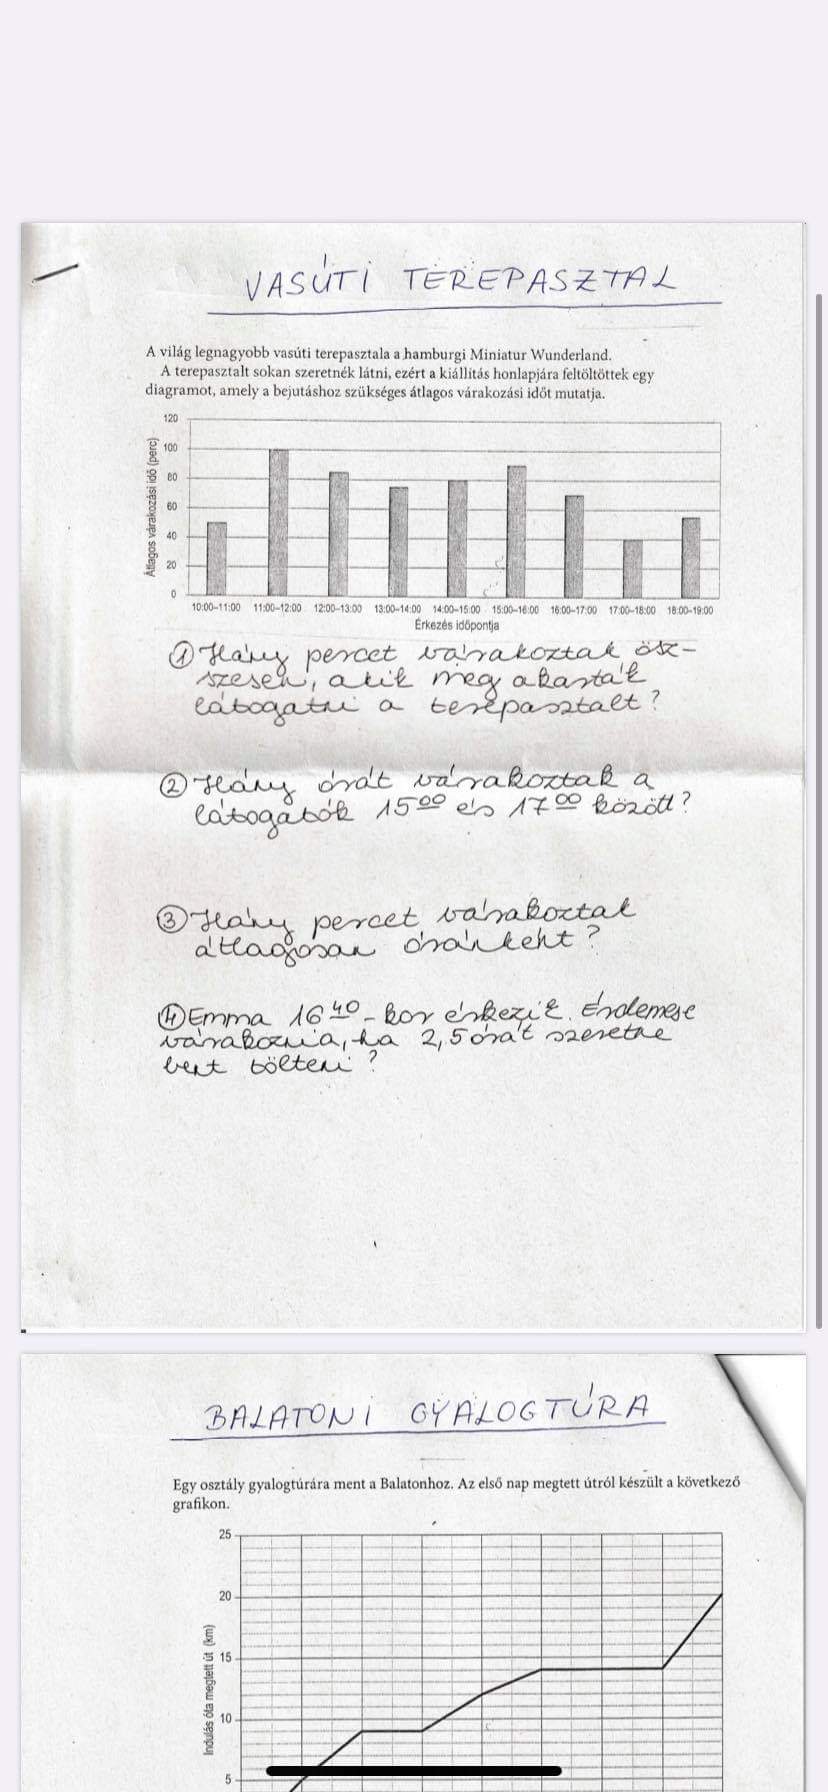 VASÚTI TEREPASZTAL
A világ legnagyobb vasúti terepasztala a hamburgi Miniatur Wunderland.
A terepasztalt sokan szeretnék látni, ezért a kiállítás honlapjára feltöltöttek egy
diagramot, amely a bejutáshoz szükséges átlagos várakozási időt mutatja.
Átlagos várakozási idő (perc)
120
100
80
60
40
20
0
10:00–11:00 11:00–12:00 12:00–13:00 13:00–14:00 14:00–15:00 15:00–16:00 16:00–17:00 17:00–18:00 18:00–19:00
Érkezés időpontja
① Hány percet várakoztak ösz-
szesen, akik meg akarták
látogatni a terepasztalt?
② Hány órát várakoztak a
látogatók 15⁰⁰ és 17⁰⁰ között?
③ Hány percet várakoztak
átlagosan óránként?
④ Emma 16⁴⁰-kor érkezik. Érdemese
várakoznia, ha 2,5 órát szeretne
bent tölteni?
BALATONI GYALOGTÚRA
Egy osztály gyalogtúrára ment a Balatonhoz. Az első nap megtett útról készült a következő
grafikon.
Indulás óta megtett út (km)
25
20
15
10
5